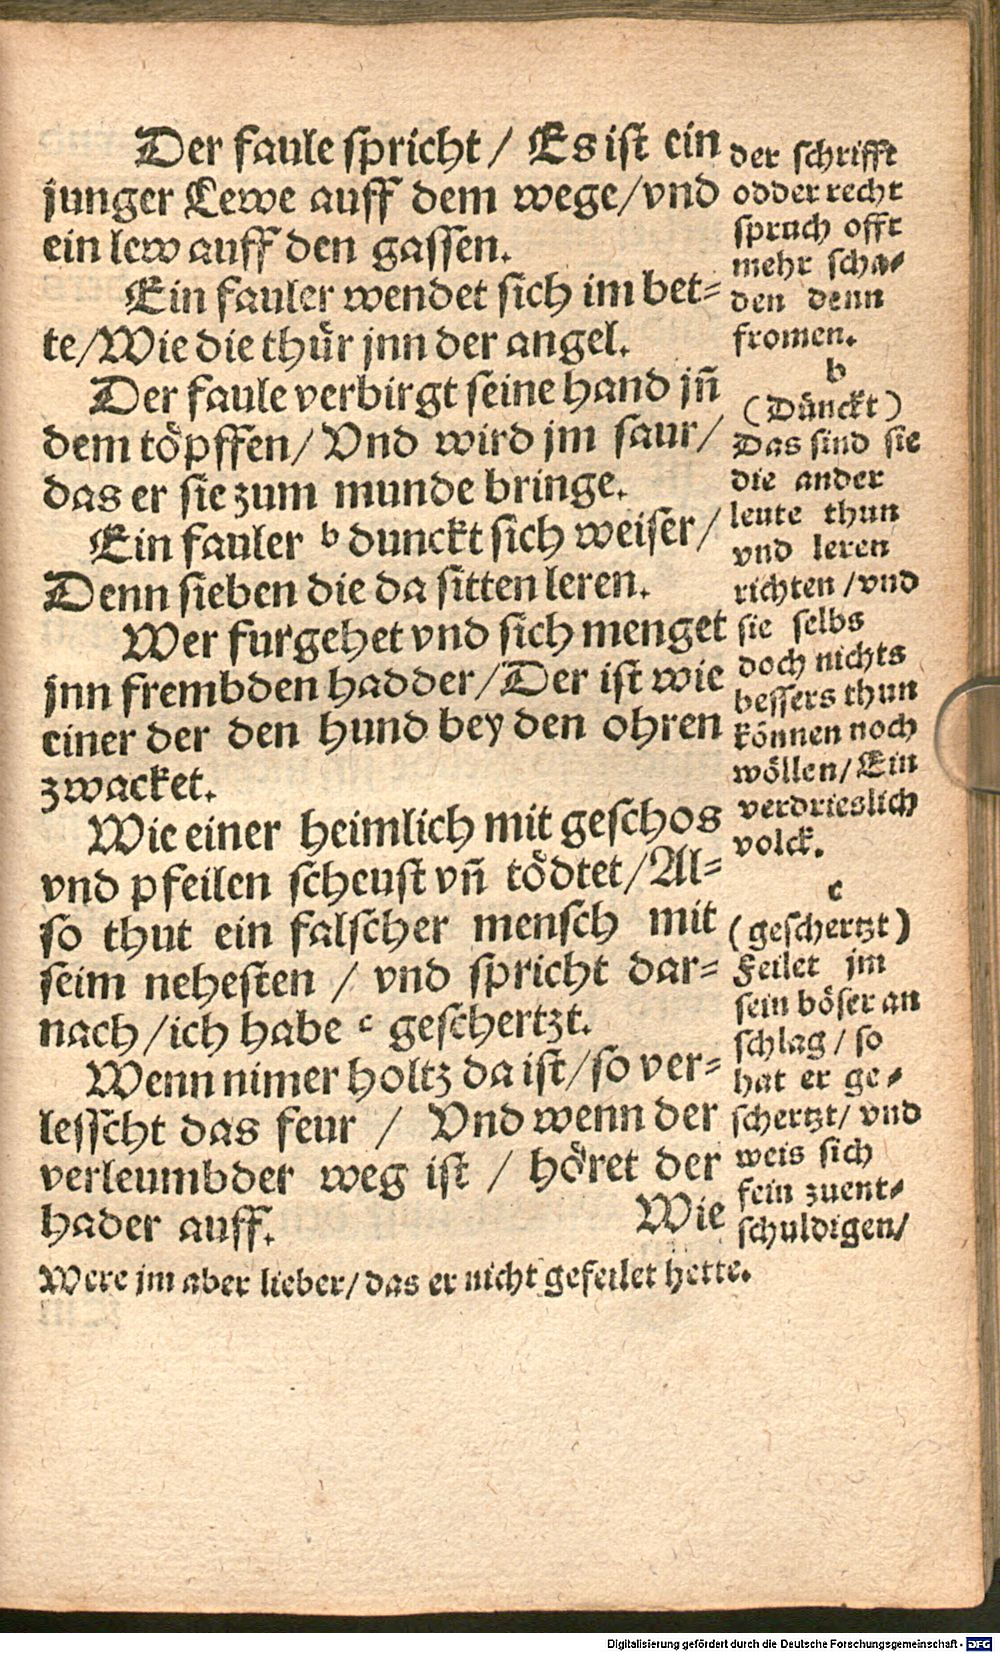 Der faule spricht / Es ist ein
junger Lewe auff dem wege/vnd
ein lew auff den gassen.
Ein fauler wendet sich im bet=
te/Wie die thür jnn der angel.
Der faule verbirgt seine hand jñ
dem töpffen/ Vnd wird jm saur/
das er sie zum munde bringe.
Ein fauler b dunckt sich weiser/
Denn sieben die da sitten leren.
Wer furgehet vnd sich menget
jnn frembden hadder/Der ist wie
einer der den hund bey den ohren
zwacket.
Wie einer heimlich mit geschos
vnd pfeilen scheust vñ tödtet/Al=
so thut ein falscher mensch mit
seim nehesten / vnd spricht dar=
nach/ich habe c geschertzt.
Wenn nimer holtz da ist/so ver=
lesscht das feur / Vnd wenn der
verleumbder weg ist / höret der
hader auff.
Wie
der schrifft
odder recht
spruch offt
mehr scha=
den denn
fromen.
b
(Dünckt)
Das sind sie
die ander
leute thun
vnd leren
richten/vnd
sie selbs
doch nichts
bessers thun
können noch
wöllen/Ein
verdrieslich
volck.
c
(geschertzt)
Feilet jm
sein böser an
schlag/ so
hat er ge=
schertzt/ vnd
weis sich
fein zuent=
schuldigen/
Were jm aber lieber/das er nicht gefeilet hette.
Digitalisierung gefördert durch die Deutsche Forschungsgemeinschaft - DFG